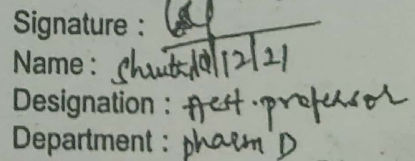 Signature :
Name : Shruti 10/12/21
Designation : Asst. professor
Department : pharm D